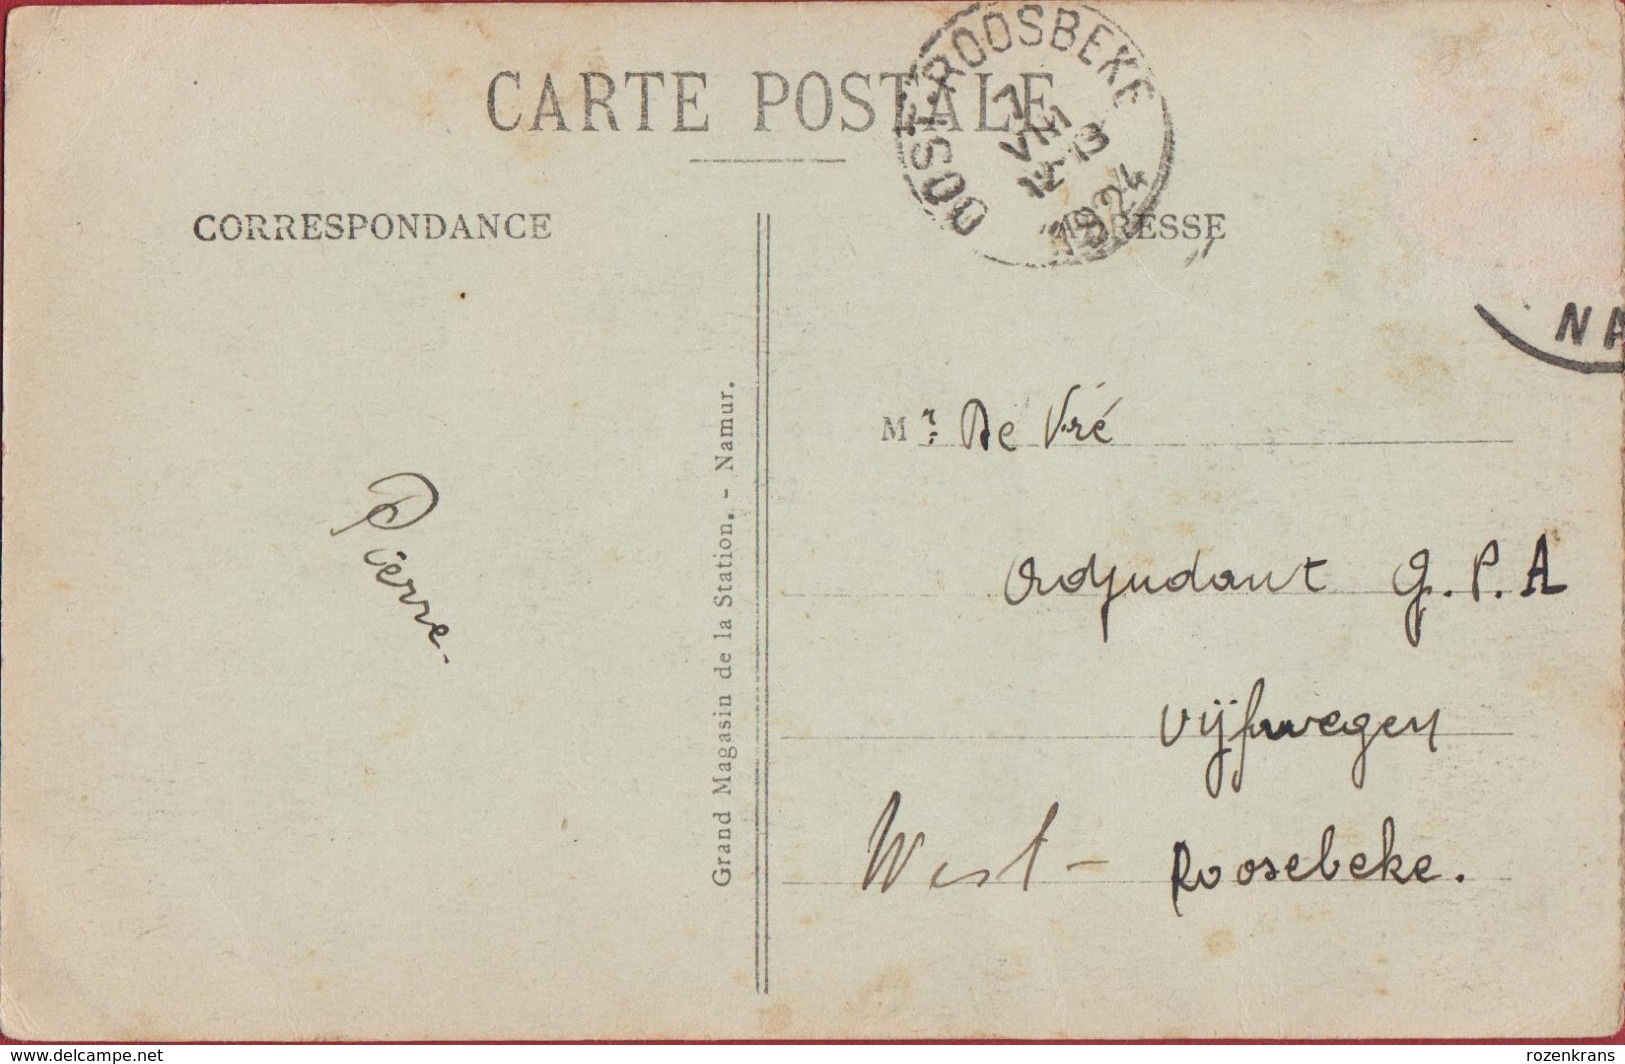 CARTE POSTALE
OOST-ROOSBEKE
7
VIII
12-13
1924
CORRESPONDANCE
ADRESSE
NA
Grand Magasin de la Station. - Namur.
Mr: De Vré
Adjudant G.P.A
Vijfwegen
West - Roosebeke.
Pierre.
www.delcampe.net
rozenkrans